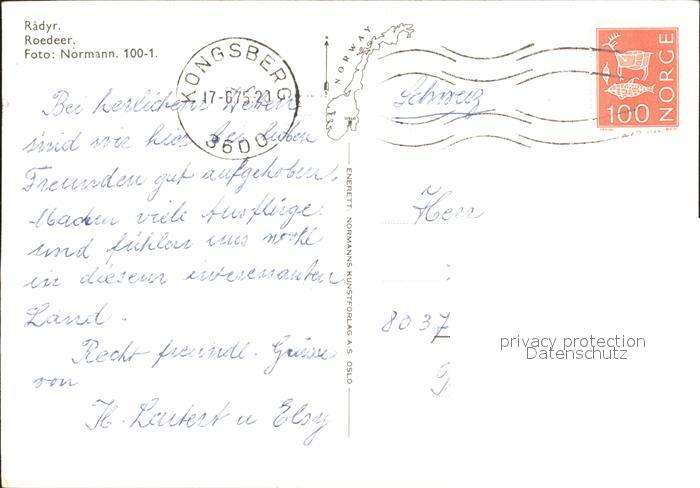 Rådyr.
Roedeer.
Foto: Normann. 100-1.
KONGSBERG
17-6 75-20
3600
NORWAY
OSLO
NORGE
100
Bei herlichem Wetter
sind wir hier bei lieben
Freunden gut aufgehoben.
Machen viele Ausflüge
und fühlen uns wohl
in diesem interessanten
Land.
Recht freundl. Grüsse
von
H. Leutert u Elsy
ENERETT: NORMANNS KUNSTFORLAG A.S. OSLO
Schweiz
Herr
8037
privacy protection
Datenschutz